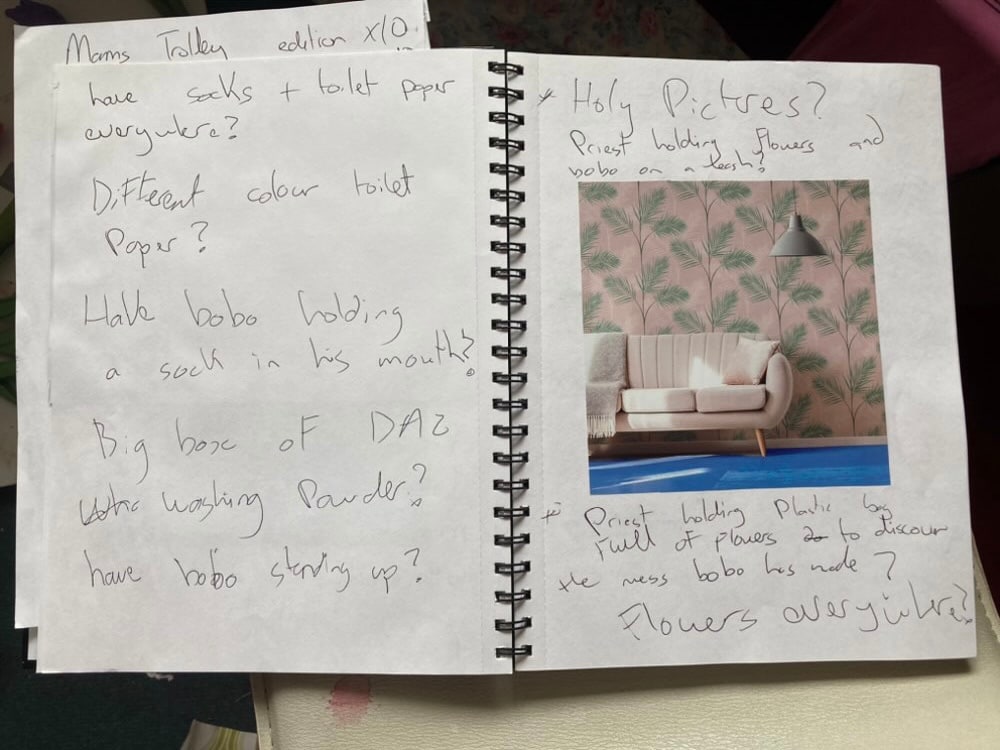 Mams Trolley edition X/O
have socks + toilet paper
everywhere?
Different colour toilet
Paper?
Have bobo holding
a sock in his mouth?
Big box of DAZ
washing Powder?
have bobo standing up?
* Holy Pictres?
Priest holding Flowers and
bobo on a leash?
* Priest holding Plastic bag
Full of flowers to discover
the mess bobo has made?
Flowers everywhere?